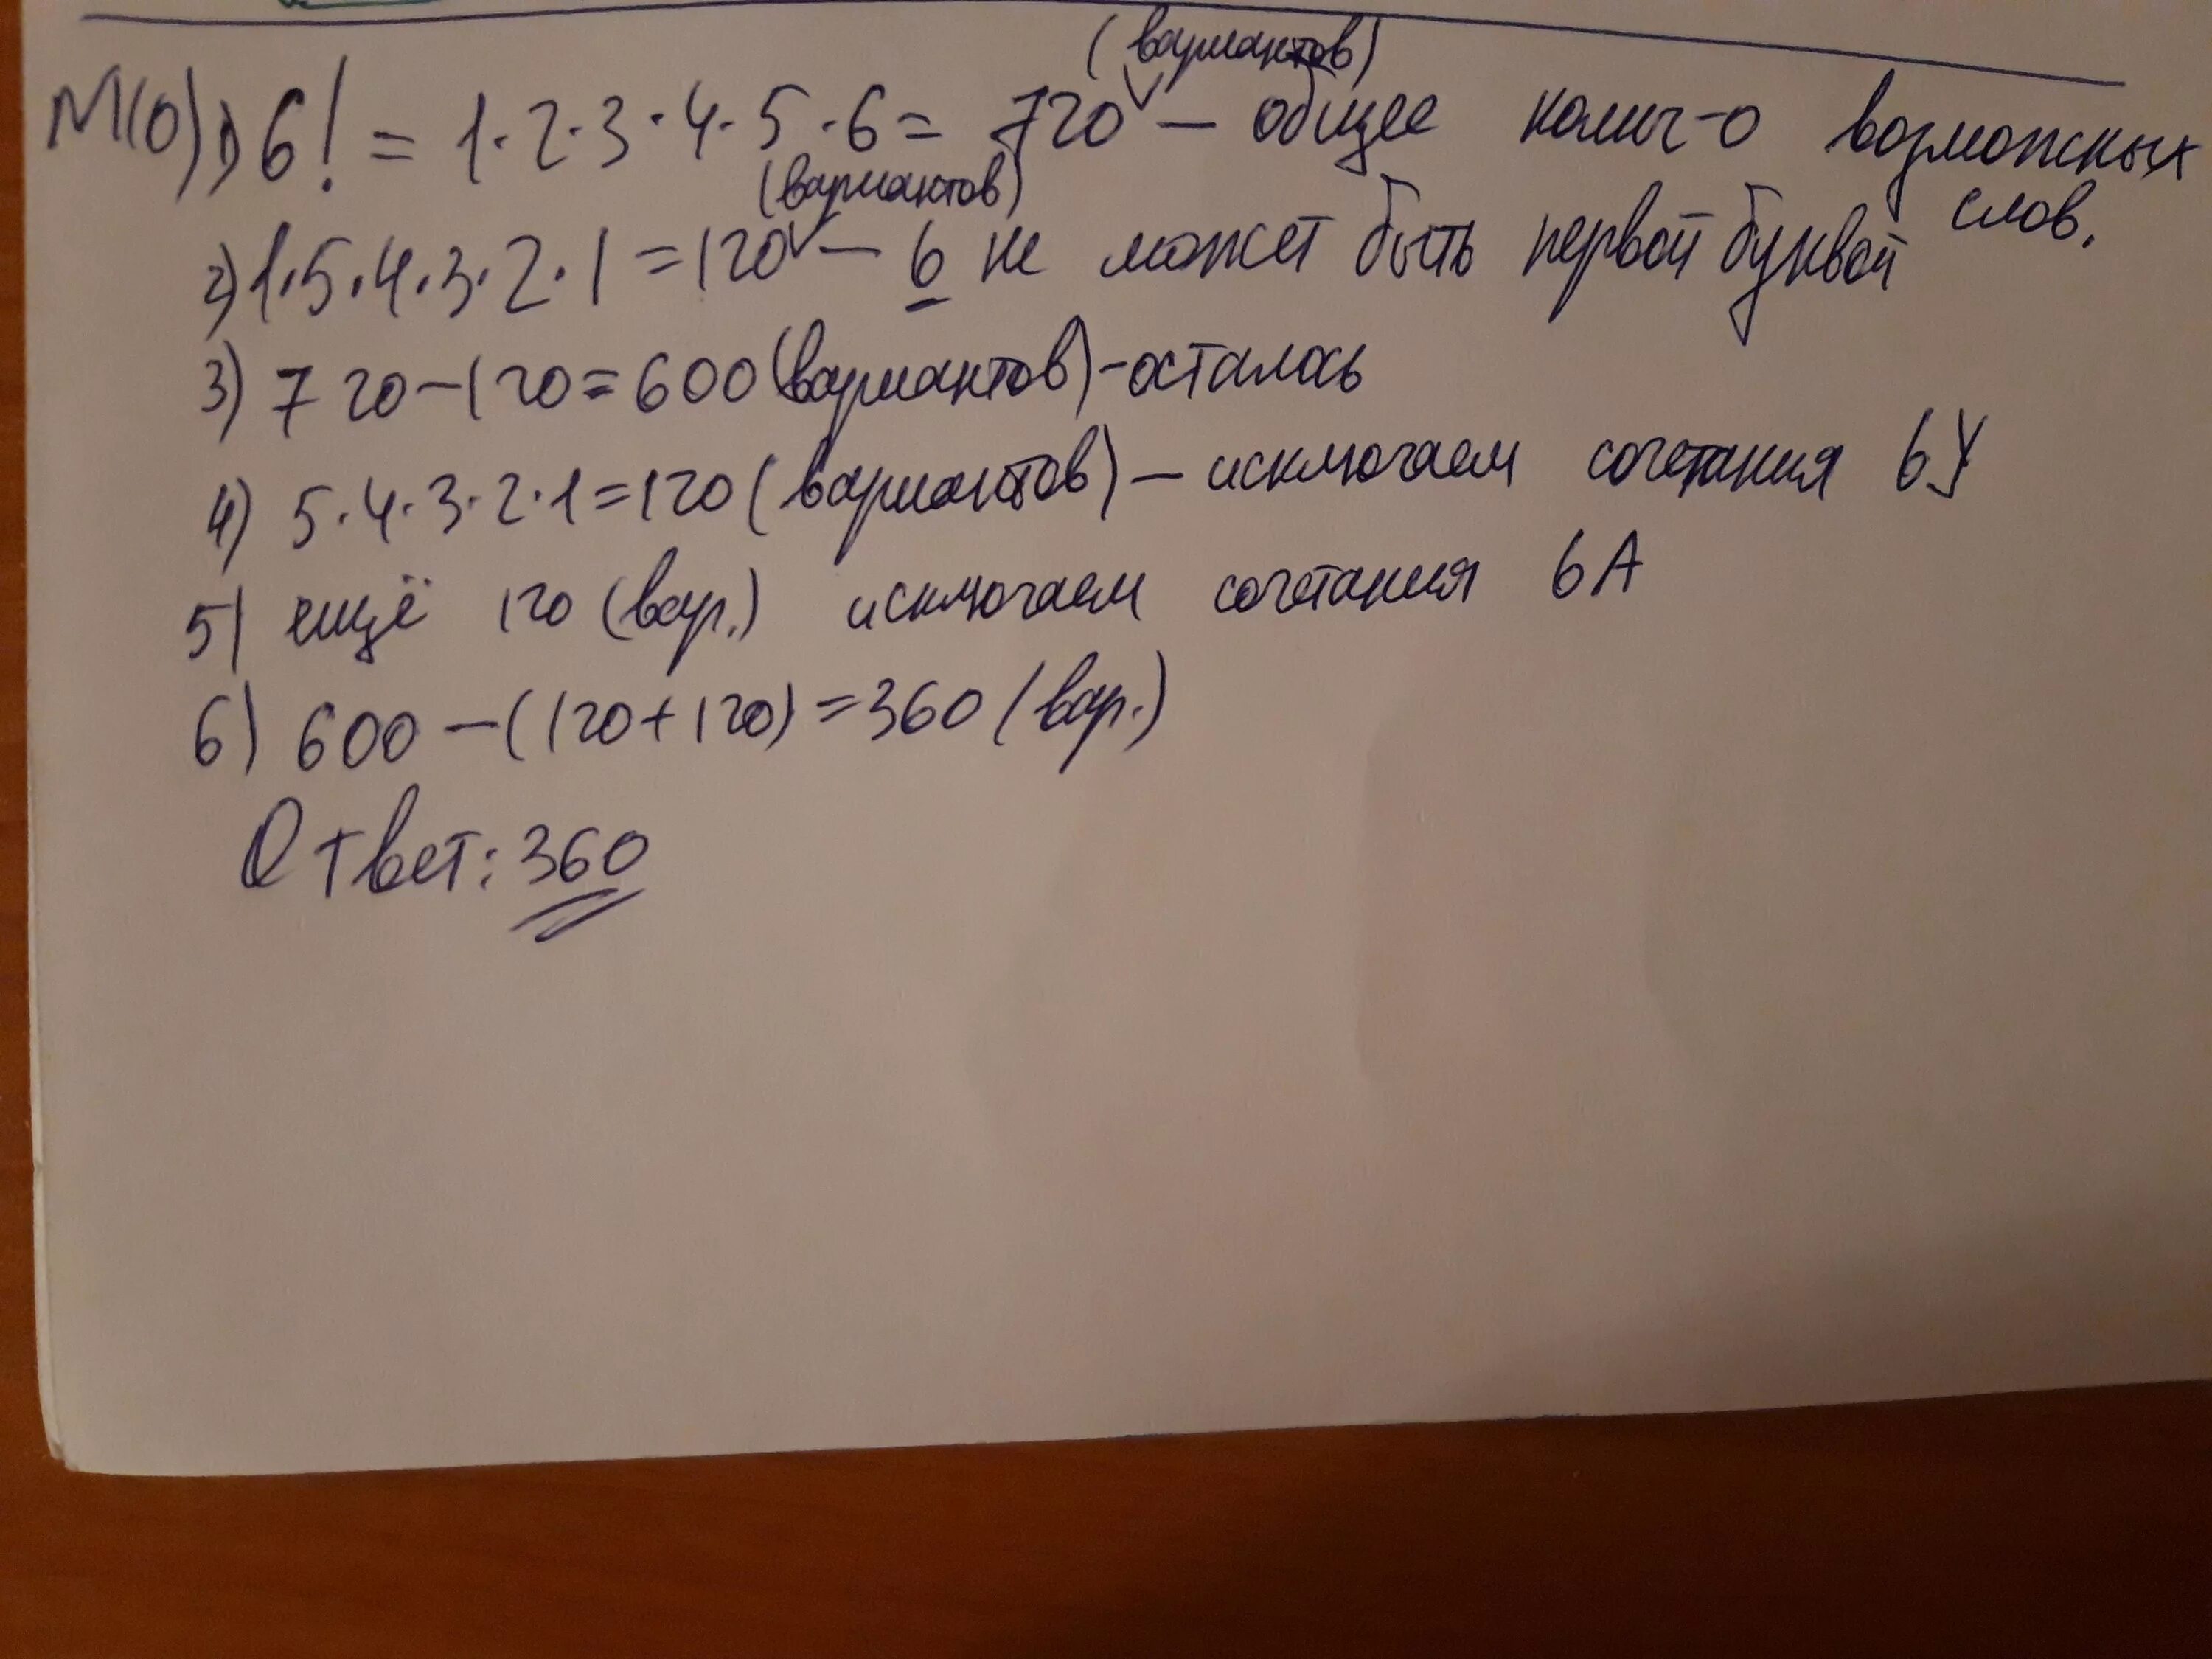 (вариантов)
М(0) 1) 6! = 1·2·3·4·5·6 = 720 – общее колич-о возможных слов.
(вариантов)
2) 1·5·4·3·2·1 = 120 – ь не может быть первой буквой
3) 720 – 120 = 600 (вариантов) - осталось
4) 5·4·3·2·1 = 120 (вариантов) – исключаем сочетания ЬУ
5) ещё 120 (вар.) исключаем сочетания ЬА
6) 600 – (120 + 120) = 360 (вар.)
Ответ: 360